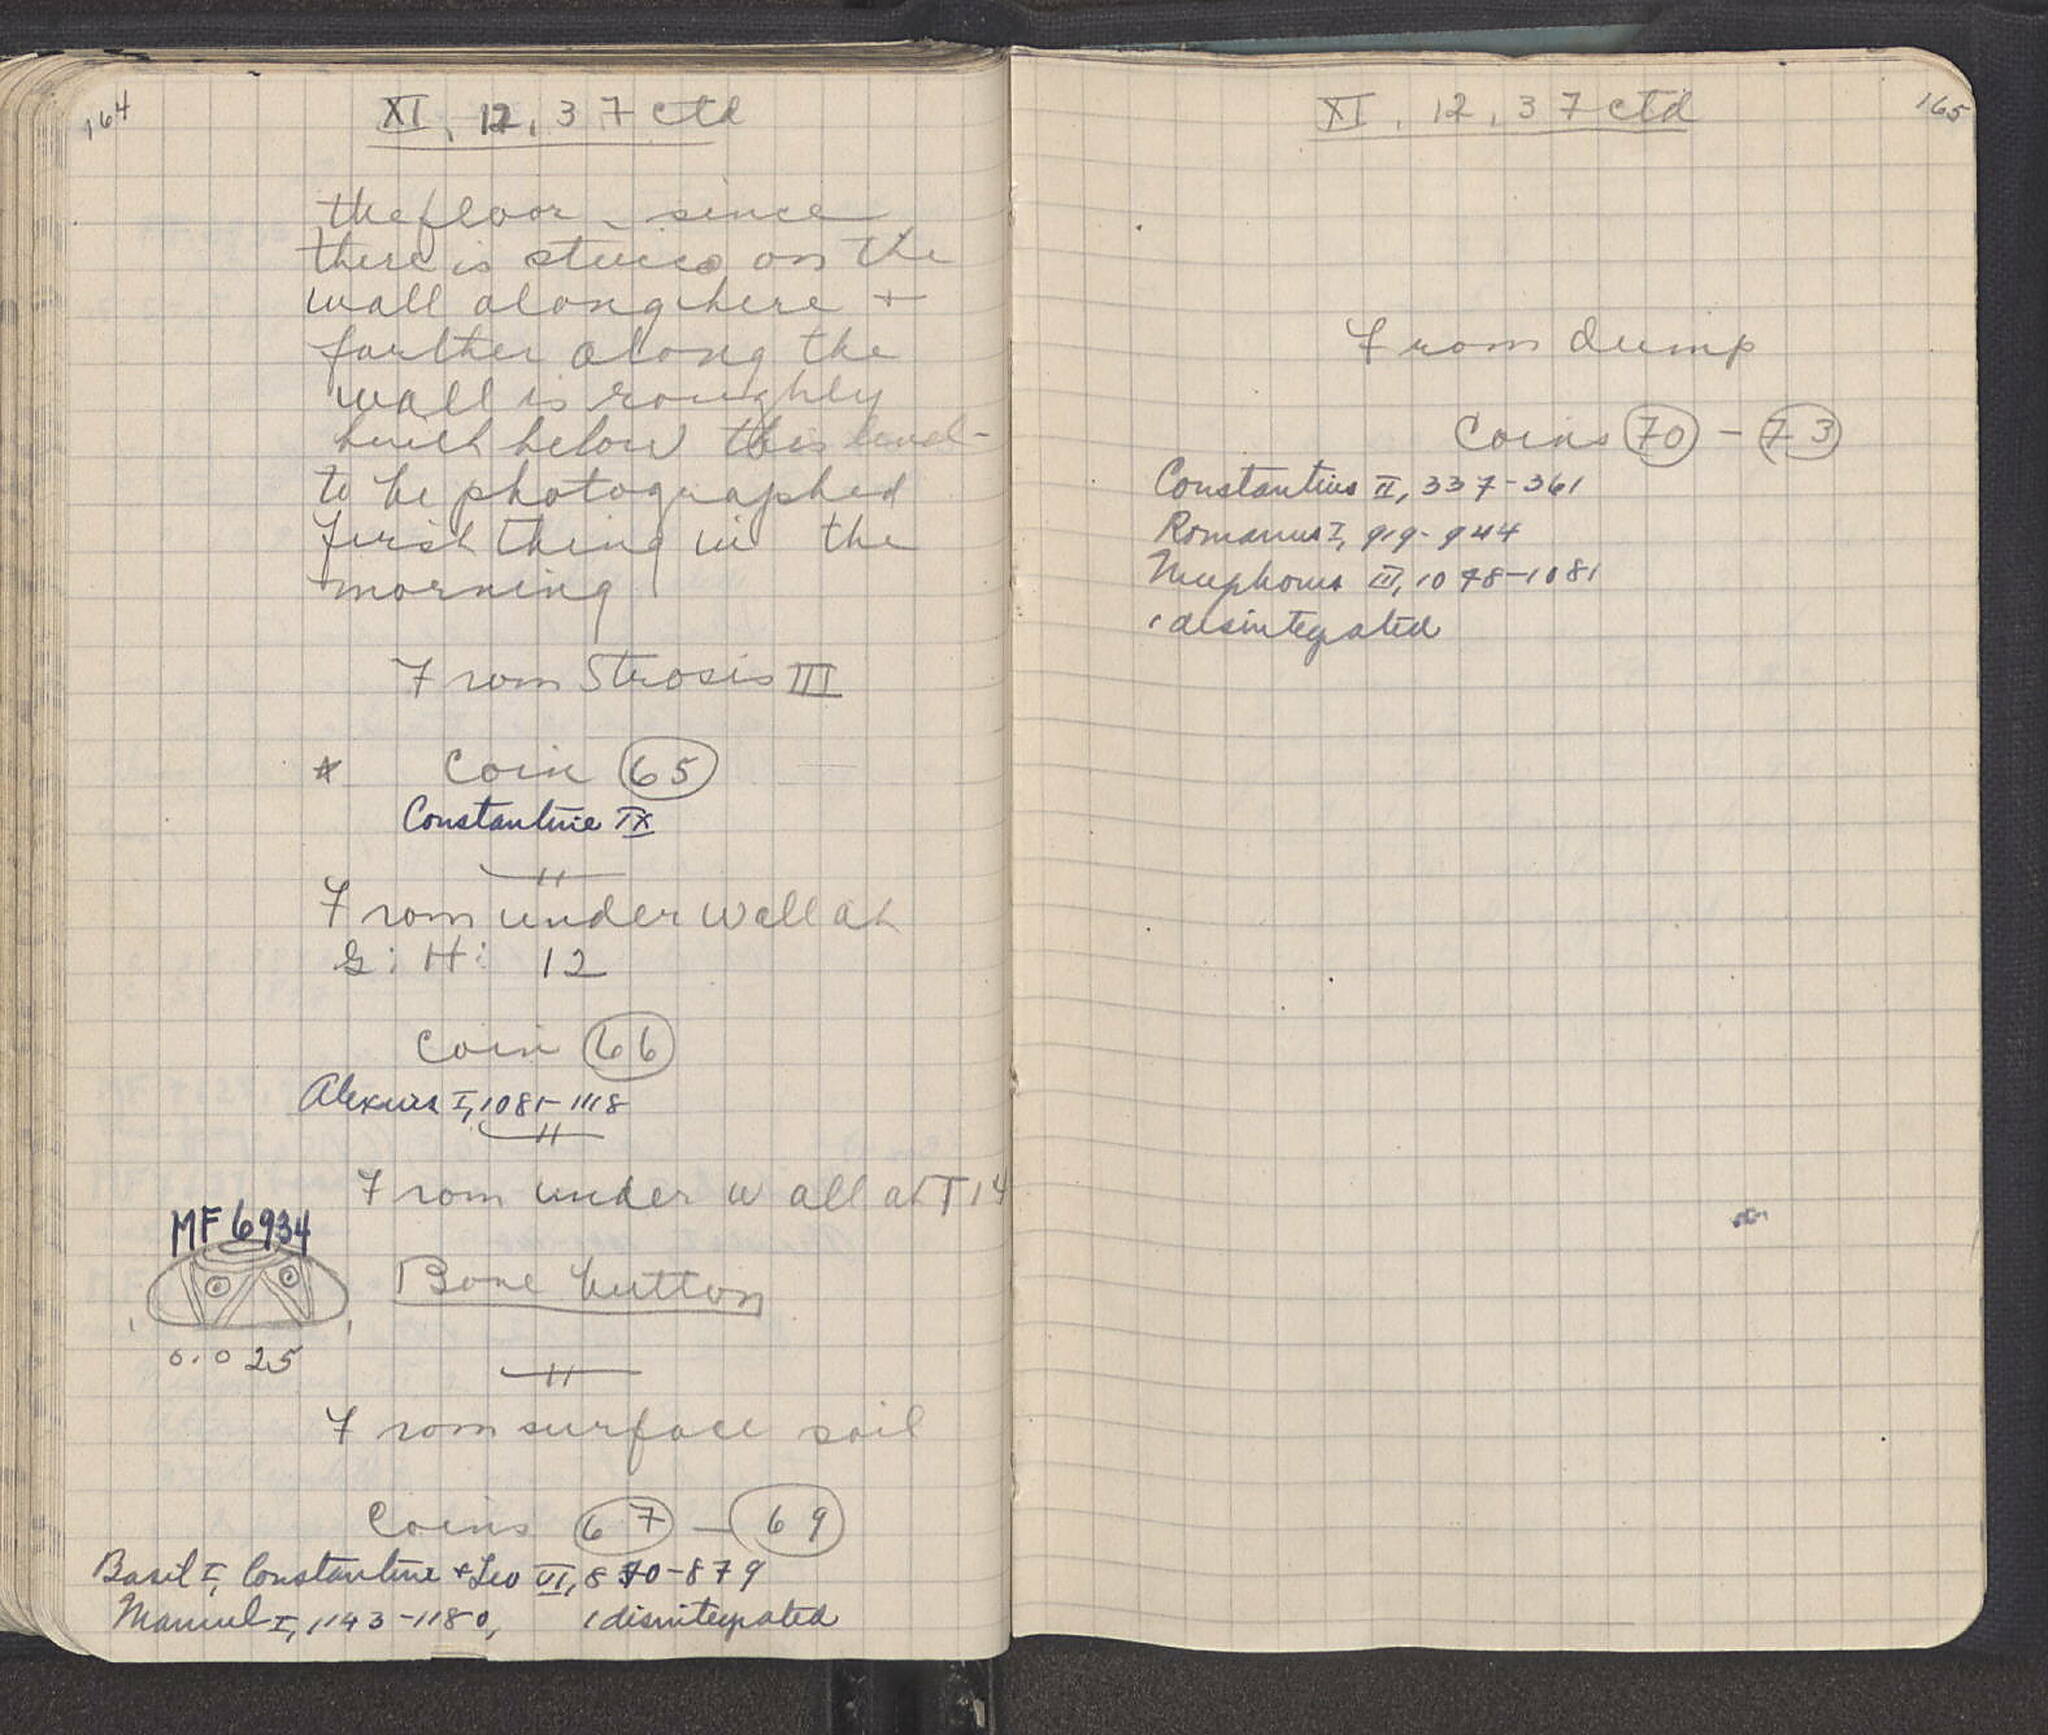 164
XI, 12, 37 ctd
the floor, since
there is stucco on the
wall along here +
farther along the
wall is roughly
built below this level -
to be photographed
first thing in the
morning
From Strosis III
* Coin 65
Constantine IX
From under wall at
G: H: 12
Coin 66
Alexius I, 1081-1118
From under wall at T 14
MF 6934
Bone button
0.025
From surface soil
Coins 67 - 69
Basil I, Constantine + Leo VI, 870-879
Manuel I, 1143-1180, 1 disintegrated
165
XI, 12, 37 ctd
From dump
Coins 70 - 73
Constantius II, 337-361
Romanus I, 919-944
Nicephorus III, 1078-1081
1 disintegrated